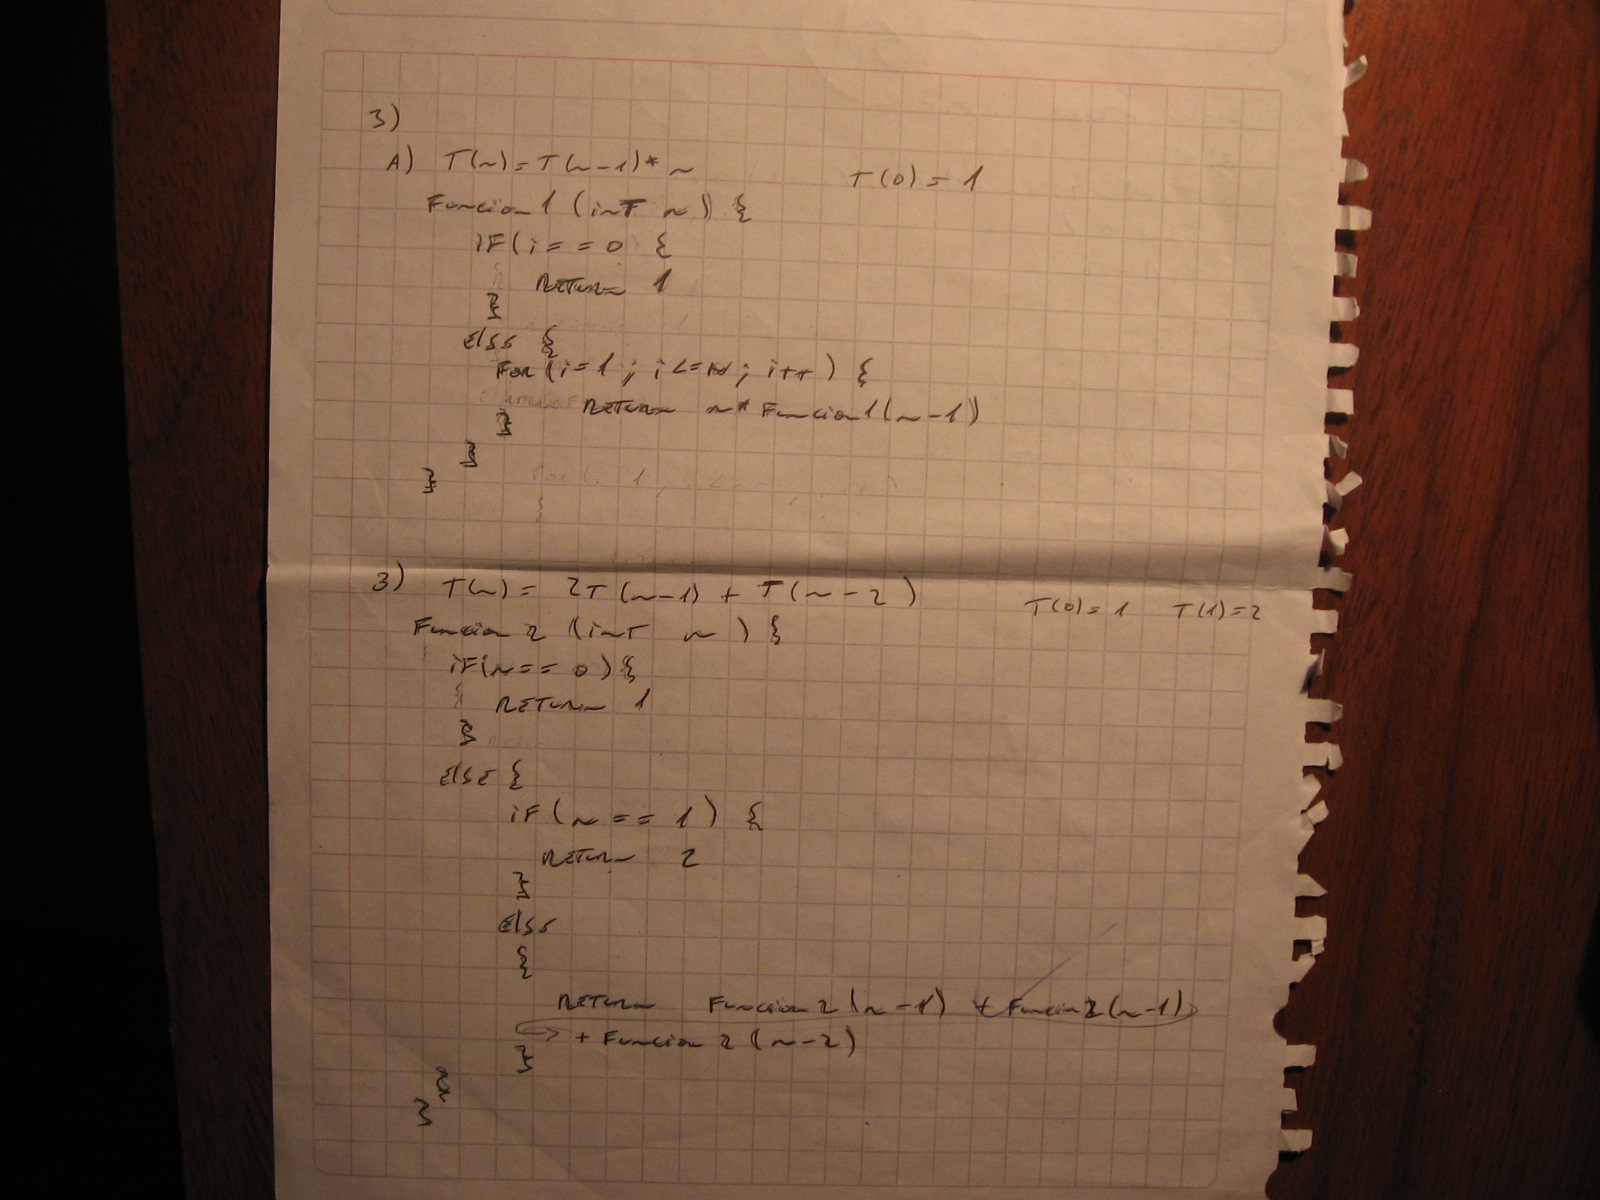 3)
A) T(n) = T(n-1) * n T(0) = 1
Funcion 1 (inT n) {
iF (i == 0 {
ReTurn 1
}
else {
For (i=1 ; i<=N ; i++) {
ReTurn n* Funcion1(n-1)
}
}
}
B) T(n) = 2T(n-1) + T(n-2) T(0)=1 T(1)=2
Funcion 2 (inT n) {
iF(n == 0) {
ReTurn 1
}
else {
iF (n == 1) {
ReTurn 2
}
else
{
ReTurn Funcion 2 (n-1) + Funcion2 (n-1)
+ Funcion 2 (n-2)
}
}
}